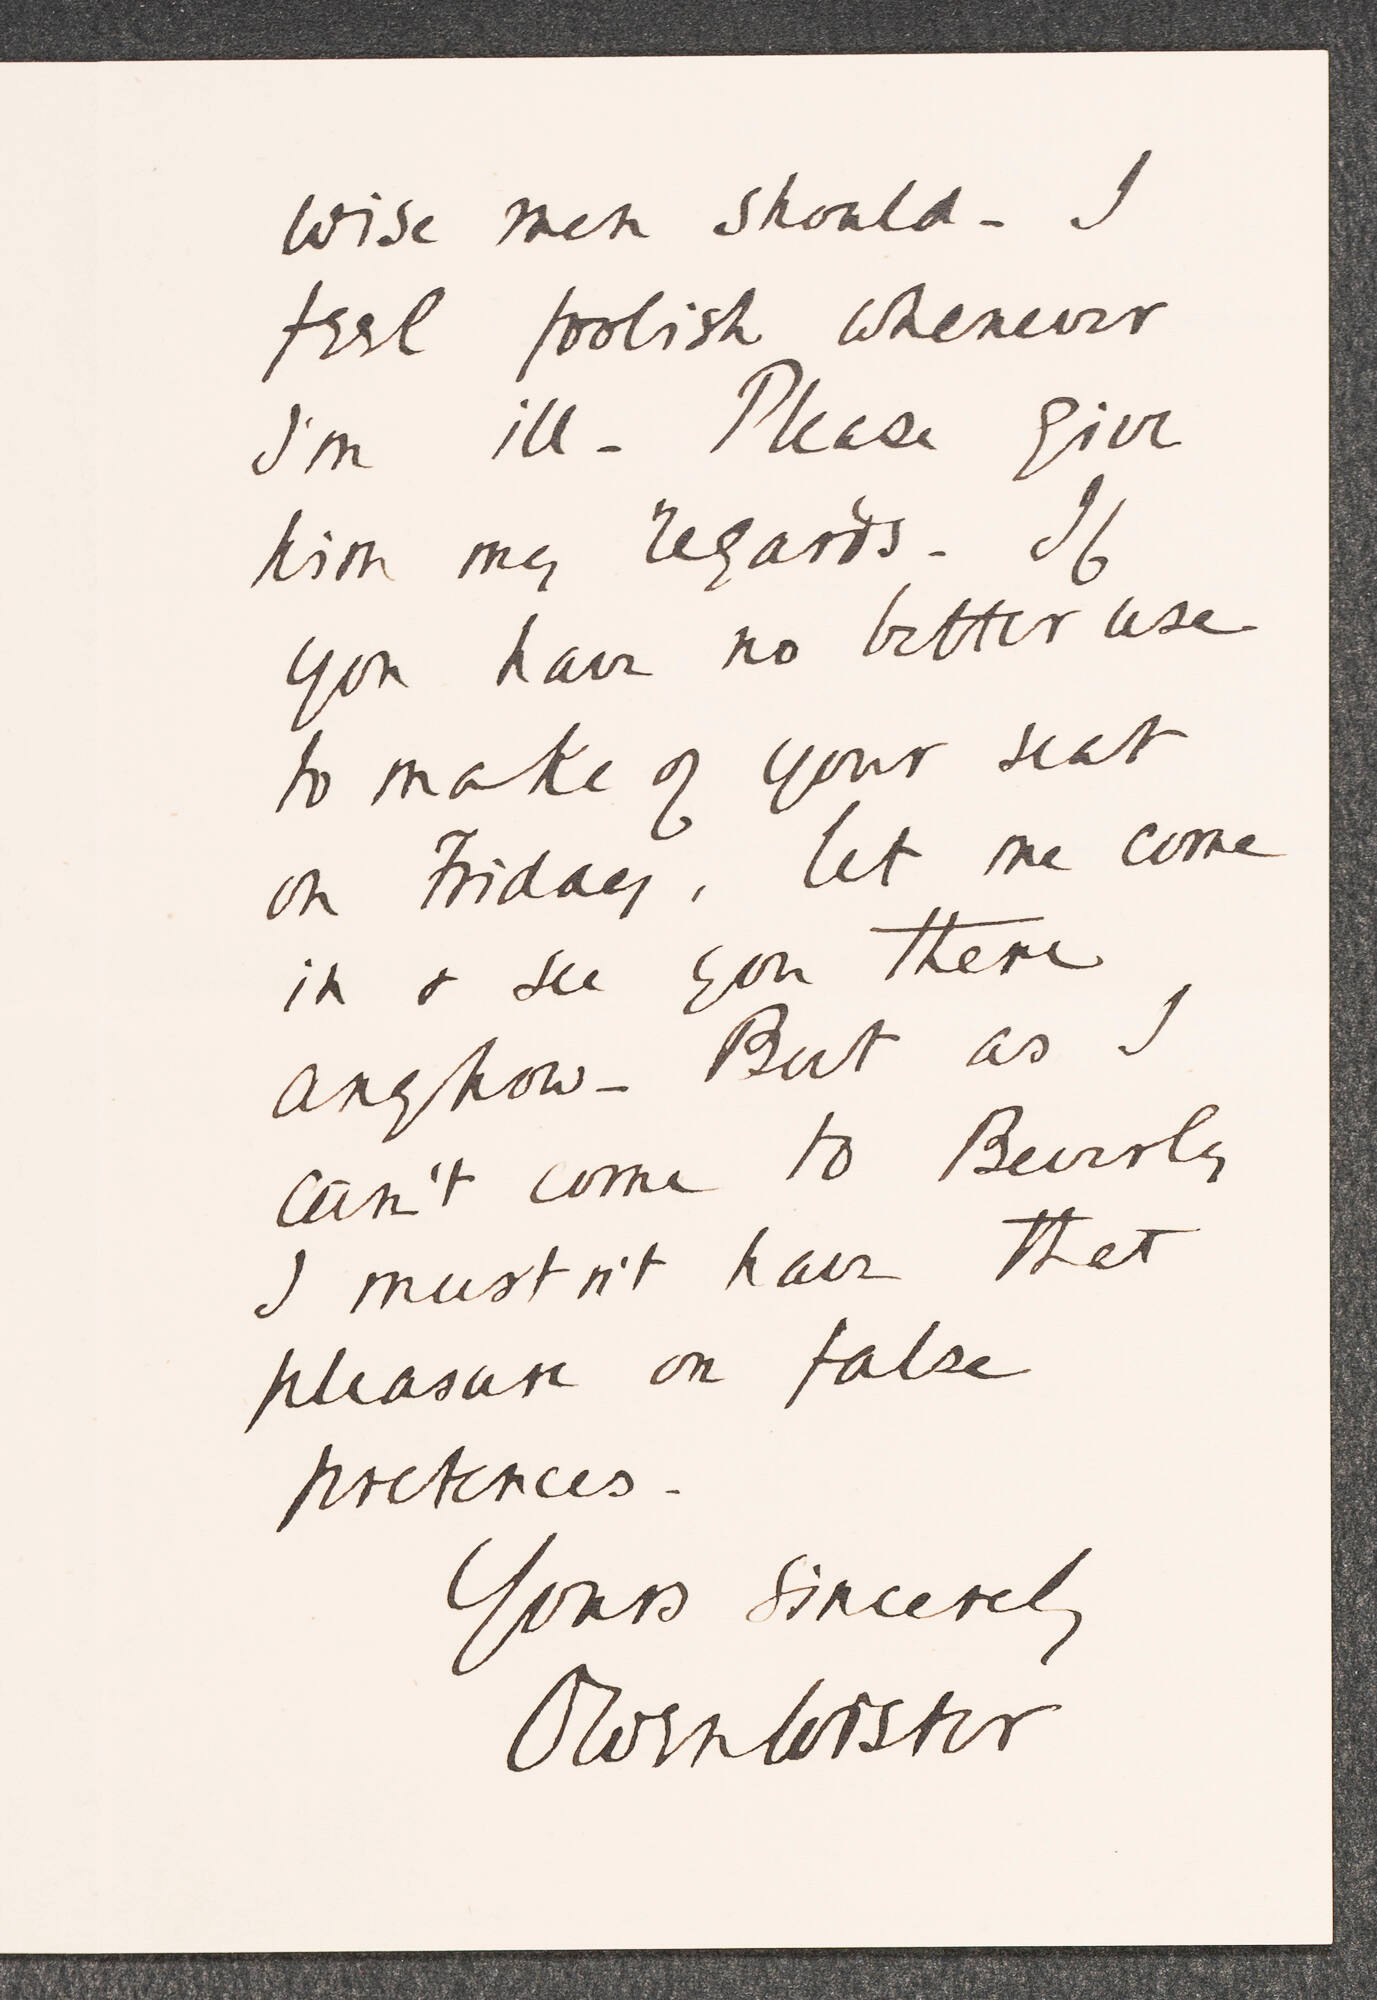 wise men should - I
feel foolish whenever
I'm ill - Please give
him my regards - If
you have no better use
to make of your seat
on Friday, let me come
in & see you there
anyhow - But as I
can't come to Beverly
I mustn't have that
pleasure on false
pretences -
Yours sincerely
Owen Wister